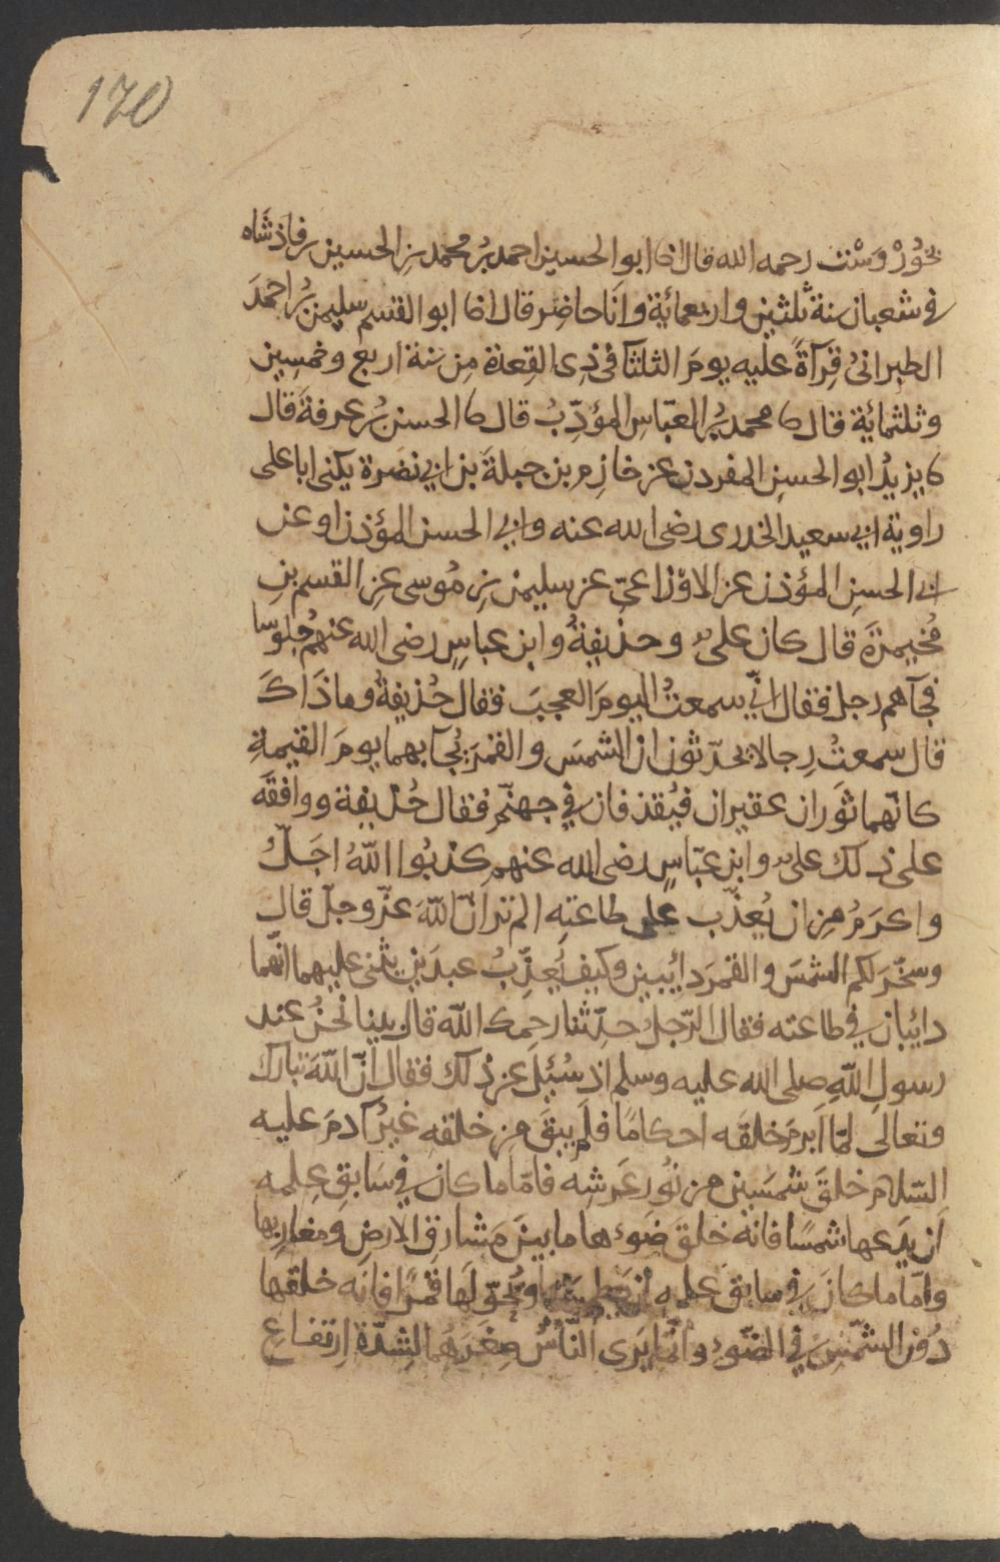 170
بحُورْوَسْت رحمه الله قال انا ابو الحسين احمد بْرُ محمد بن الحسين بن فاذشاه
في شعبان سنة ثلثين واربعمائة وانَا حاضِر قال انا ابو القسم سليمن بْرُ احمدَ
الطبرانىُ قِرآةً عليه يومَ الثلثآ في ذِى القِعدة مِن سَنة اربع وخمسِين
وثلثمائِة قال نا محمد بْرُ العبّاسِ المؤدِّبُ قال نا الحسن بْرُ عرفةَ قال
نا يزيدُ ابو الحسنِ المفردن عن خازِم بن جبلةَ بن ابي نضرة يكنى ابا على
راوية ابي سعيد الخدرى رضى الله عنه وابي الحسن المؤذن او عن
ابي الحسنِ المؤذن عن الاوْزاعىّ عن سليمن بن مُوسى عنِ القسم بنِ
مُخيمرَةَ قال كان علىٌّ وحذيفةُ وابن عباسٍ رضى الله عنهُم جلوسا
فجآهم رجل فقال انّي سمعتُ اليومَ العجبَ فقال حُذيفةُ وماذَاكَ
قال سمعتُ رِجالا يحدّثون ان الشمسَ والقمرَ يُجآ بهما يومَ القيمةِ
كانّهما ثَوران عقيران فيُقذفان في جهنّم فقال حُذيفة ووافقَه
على ذلك علىٌّ وابن عبّاسٍ رضى الله عنهم كذبُوا اللّهُ اجَلّ
واكرَمُ من ان يُعذّب على طاعتِه الم تر انّ اللّهَ عزّ وجلّ قال
وسخّرَ لكم الشمسَ والقمرَ دائِبين وكيف يُعذِّبُ عبدَين يثنى عليهما انّهما
دائِبان في طاعته فقال الرّجلُ حدّثنا رحِمك اللّه قال بينا نحنُ عند
رسولِ اللّهِ صلى الله عليه وسلم اذ سُئِلَ عن ذلك فقال انّ اللّهَ تبارك
وتعالى لمّا اَبرمَ خلقَه احكامًا فلَم يبقَ مِن خلقه غيرُ آدمَ عليه
السّلام خلقَ شمسَين من نُور عَرشِه فامّا ما كان في سَابِق عِلمِه
اَن يَدَعها شمسًا فانه خلقَ ضَوءها ما بينَ مَشارِق الارضِ ومغارِبِها
وامّا ما كانَ في سابقِ علمِه ان يَطمِسَها ويُحوّلَها قمرًا فانّه خلقها
دُون الشّمسِ في الضّوءِ وانّما يَرى النّاسُ صِغَرَهُما لِشِدّة اِرتفاعِ